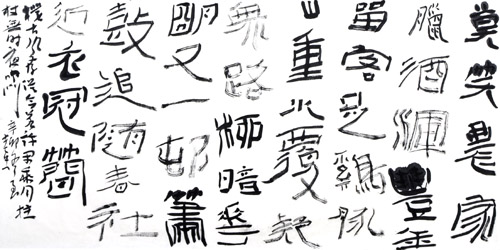 莫笑農家
臘酒渾豐年
留客足雞豚
山重水覆疑
無路柳暗花
明又一邨簫
鼓追隨春社
近衣冠簡
樸古風存從今若許閒乘月拄
杖無時夜叩門